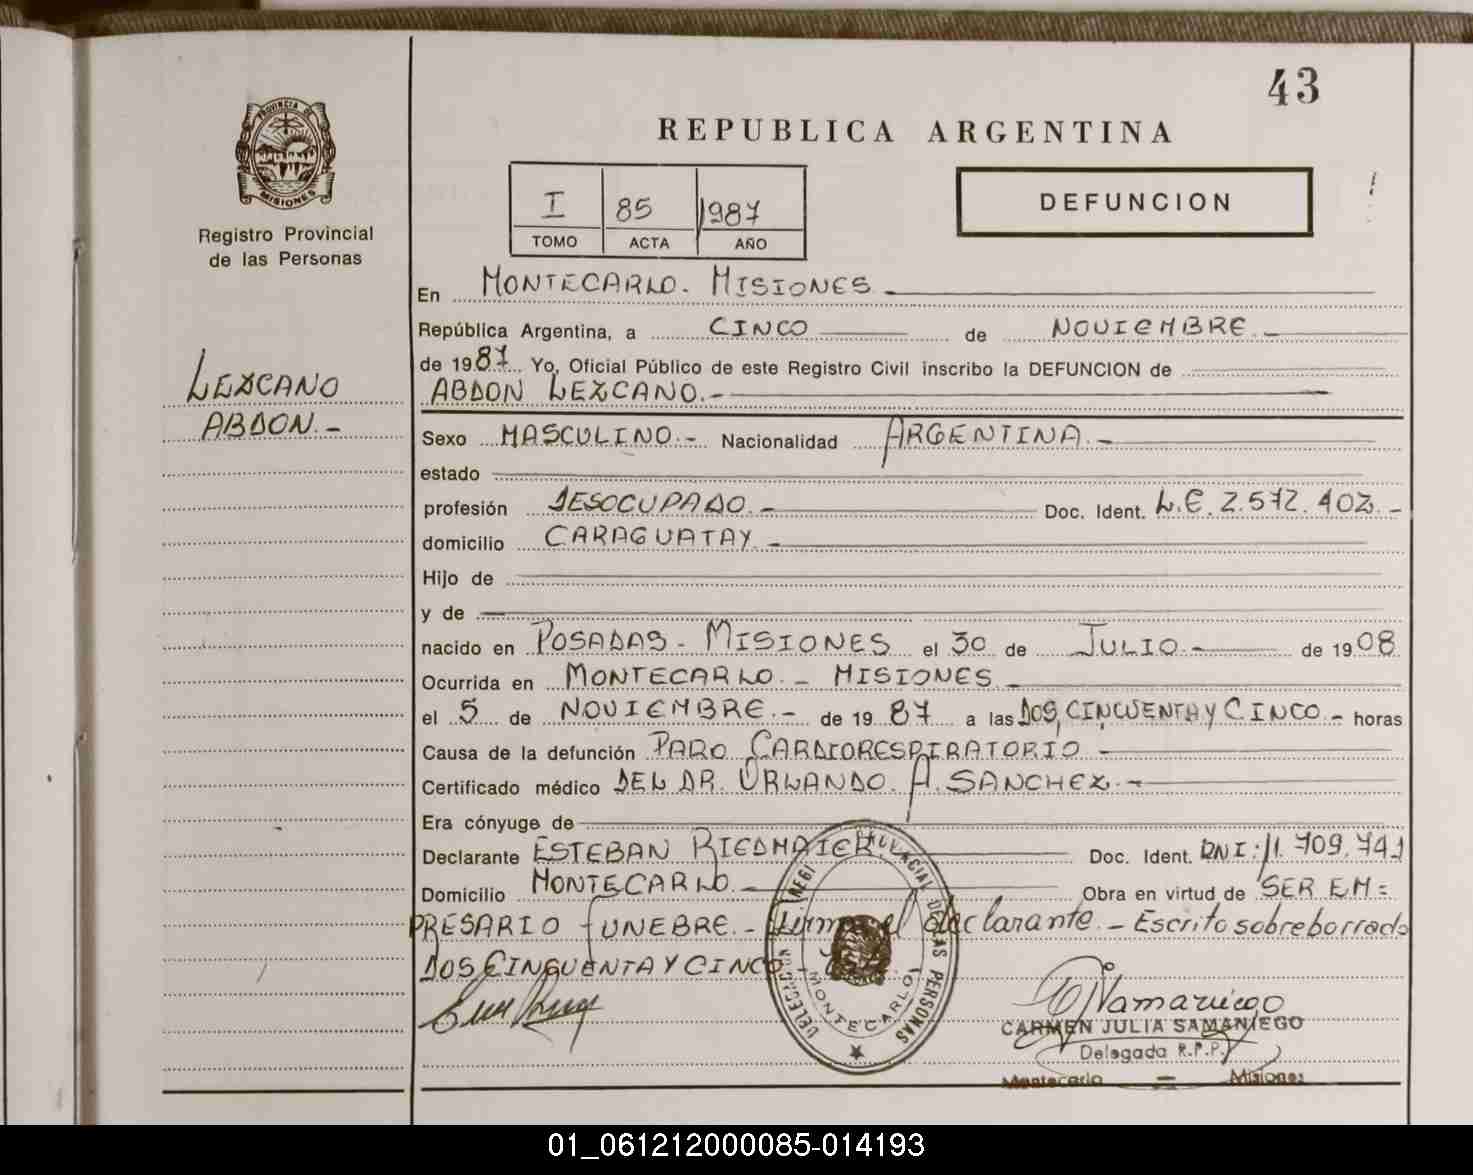 43
REPUBLICA ARGENTINA
PROVINCIA DE
MISIONES
Registro Provincial
de las Personas
I 85 1987
TOMO ACTA AÑO
DEFUNCION
En MONTECARLO. MISIONES
República Argentina, a CINCO de NOVIEMBRE.-
de 1987. Yo, Oficial Público de este Registro Civil inscribo la DEFUNCION de
ABDON LEZCANO.-
LEZCANO
ABDON.-
Sexo MASCULINO.- Nacionalidad ARGENTINA.-
estado
profesión DESOCUPADO.- Doc. Ident. L.E. 2.572.402.-
domicilio CARAGUATAY.-
Hijo de
y de
nacido en POSADAS - MISIONES el 30 de JULIO.- de 1908
Ocurrida en MONTECARLO.- MISIONES.-
el 5 de NOVIEMBRE.- de 1987 a las DOS, CINCUENTA Y CINCO.- horas
Causa de la defunción PARO CARDIORESPIRATORIO.-
Certificado médico DEL DR. ORLANDO. A. SANCHEZ.-
Era cónyuge de
Declarante ESTEBAN RIEDMAIER. Doc. Ident. DNI: 11.709.741
Domicilio MONTECARLO.- Obra en virtud de SER EM=
PRESARIO FUNEBRE.- Firma el declarante.- Escrito sobreborrado
DOS, CINCUENTA Y CINCO.-
MONTECARLO
CARMEN JULIA SAMANIEGO
Delegada R.P.P.
Montecarlo — Misiones
01_061212000085-014193